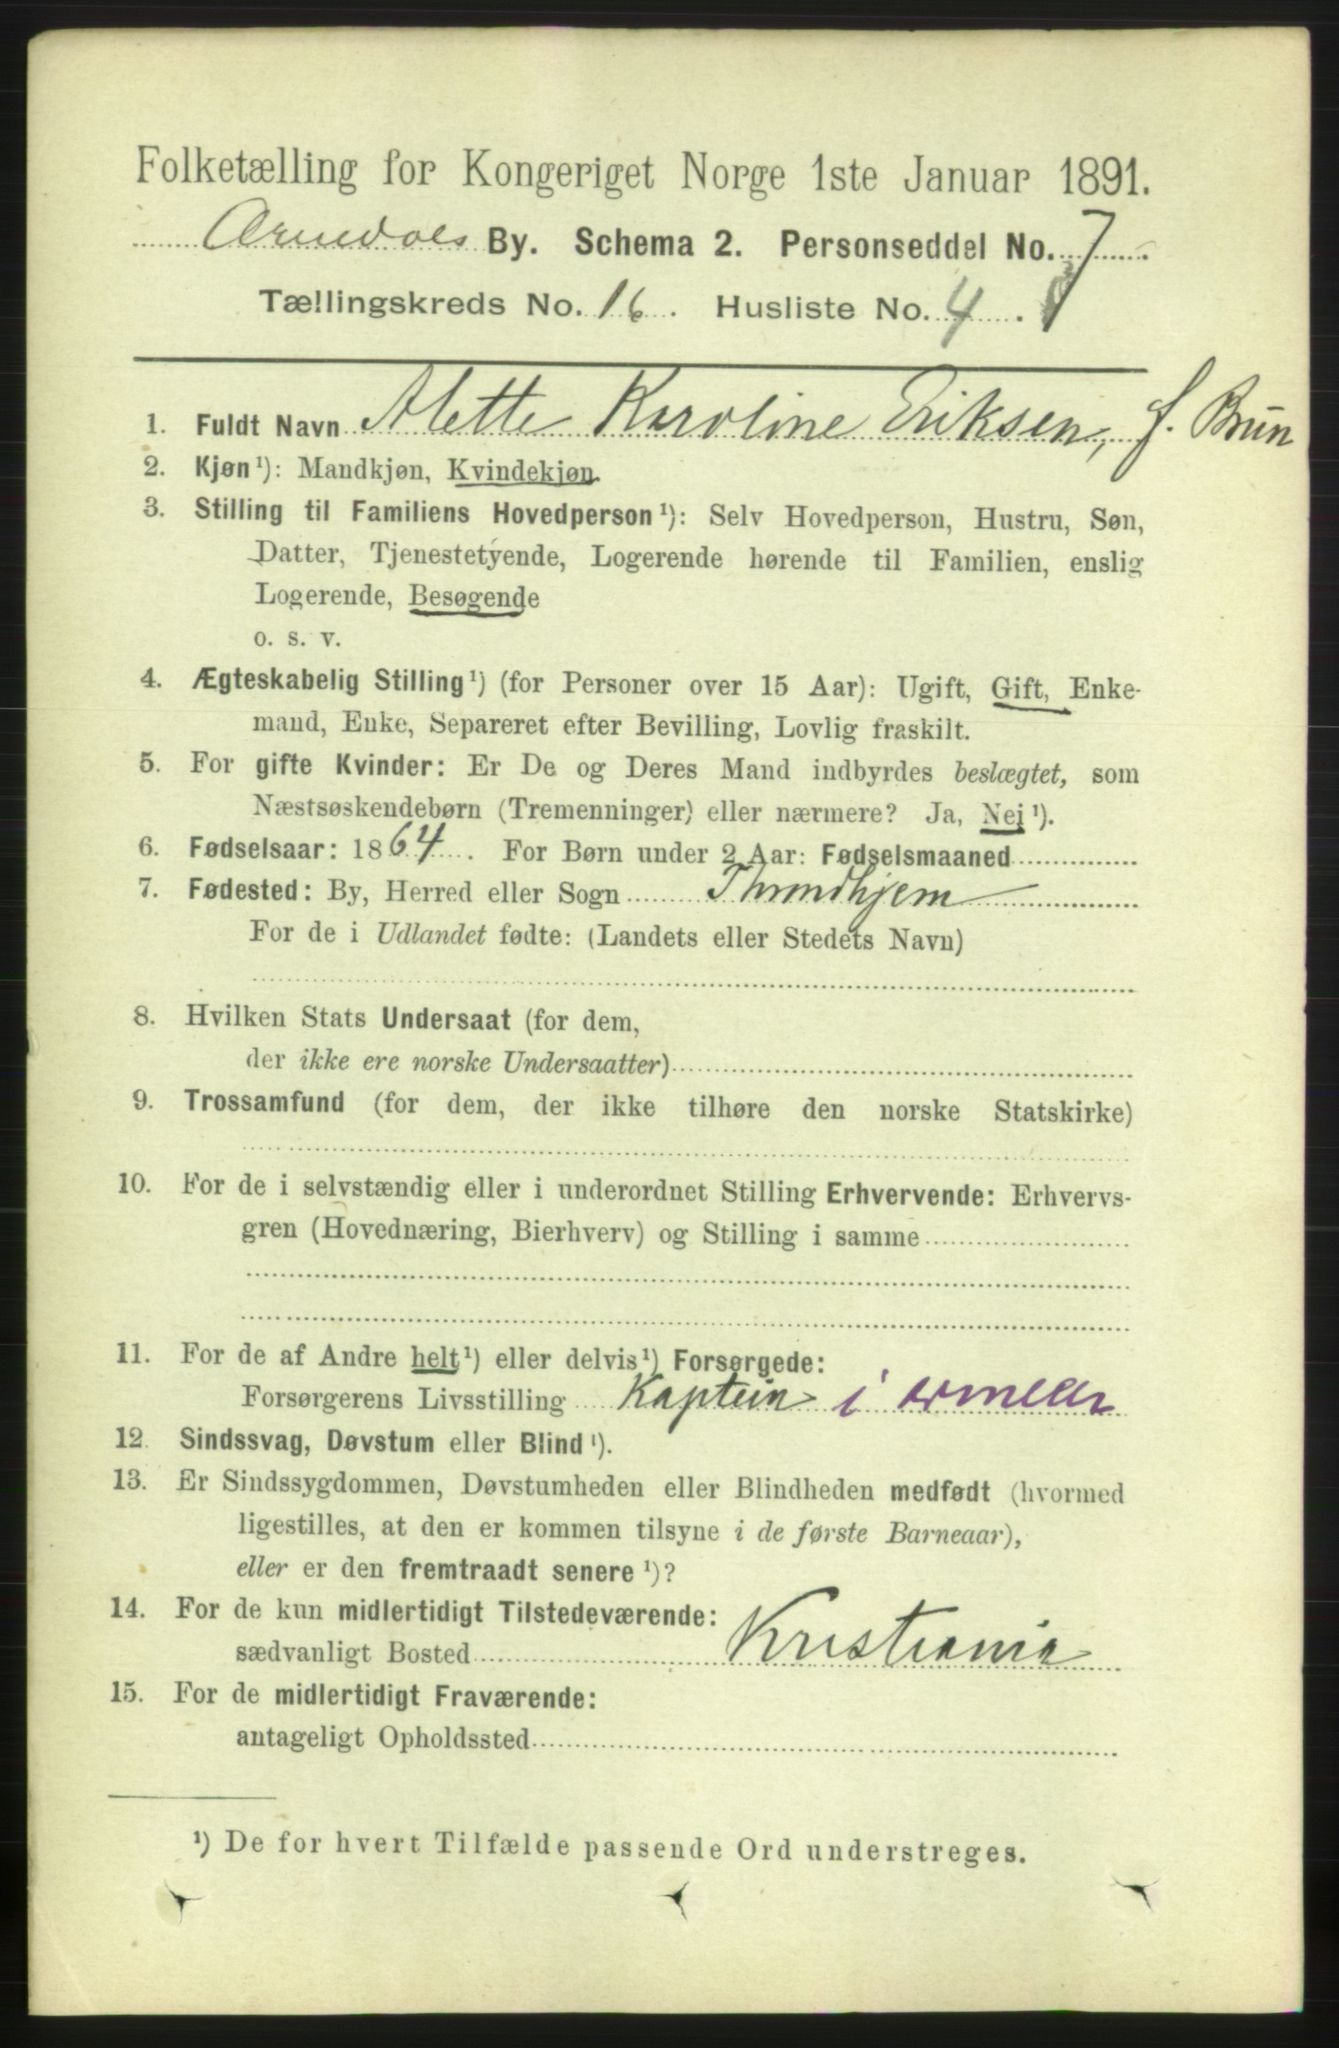 Folketælling for Kongeriget Norge 1ste Januar 1891.
Arendals By. Schema 2. Personseddel No. 7
Tællingskreds No. 16. Husliste No. 4.
1. Fuldt Navn Alette Karoline Eriksen, f. Brun
2. Kjøn¹): Mandkjøn, Kvindekjøn
3. Stilling til Familiens Hovedperson¹): Selv Hovedperson, Hustru, Søn,
Datter, Tjenestetyende, Logerende hørende til Familien, enslig
Logerende, Besøgende
o. s. v.
4. Ægteskabelig Stilling¹) (for Personer over 15 Aar): Ugift, Gift, Enke-
mand, Enke, Separeret efter Bevilling, Lovlig fraskilt.
5. For gifte Kvinder: Er De og Deres Mand indbyrdes beslægtet, som
Næstsøskendebørn (Tremenninger) eller nærmere? Ja, Nej¹).
6. Fødselsaar: 1864. For Børn under 2 Aar: Fødselsmaaned
7. Fødested: By, Herred eller Sogn Throndhjem
For de i Udlandet fødte: (Landets eller Stedets Navn)
8. Hvilken Stats Undersaat (for dem,
der ikke ere norske Undersaatter)
9. Trossamfund (for dem, der ikke tilhøre den norske Statskirke)
10. For de i selvstændig eller i underordnet Stilling Erhvervende: Erhvervs-
gren (Hovednæring, Bierhverv) og Stilling i samme
11. For de af Andre helt¹) eller delvis¹) Forsørgede:
Forsørgerens Livsstilling Kaptein i armeen
12. Sindssvag, Døvstum eller Blind¹).
13. Er Sindssygdommen, Døvstumheden eller Blindheden medfødt (hvormed
ligestilles, at den er kommen tilsyne i de første Barneaar),
eller er den fremtraadt senere¹)?
14. For de kun midlertidigt Tilstedeværende:
sædvanligt Bosted Kristiania
15. For de midlertidigt Fraværende:
antageligt Opholdssted
¹) De for hvert Tilfælde passende Ord understreges.